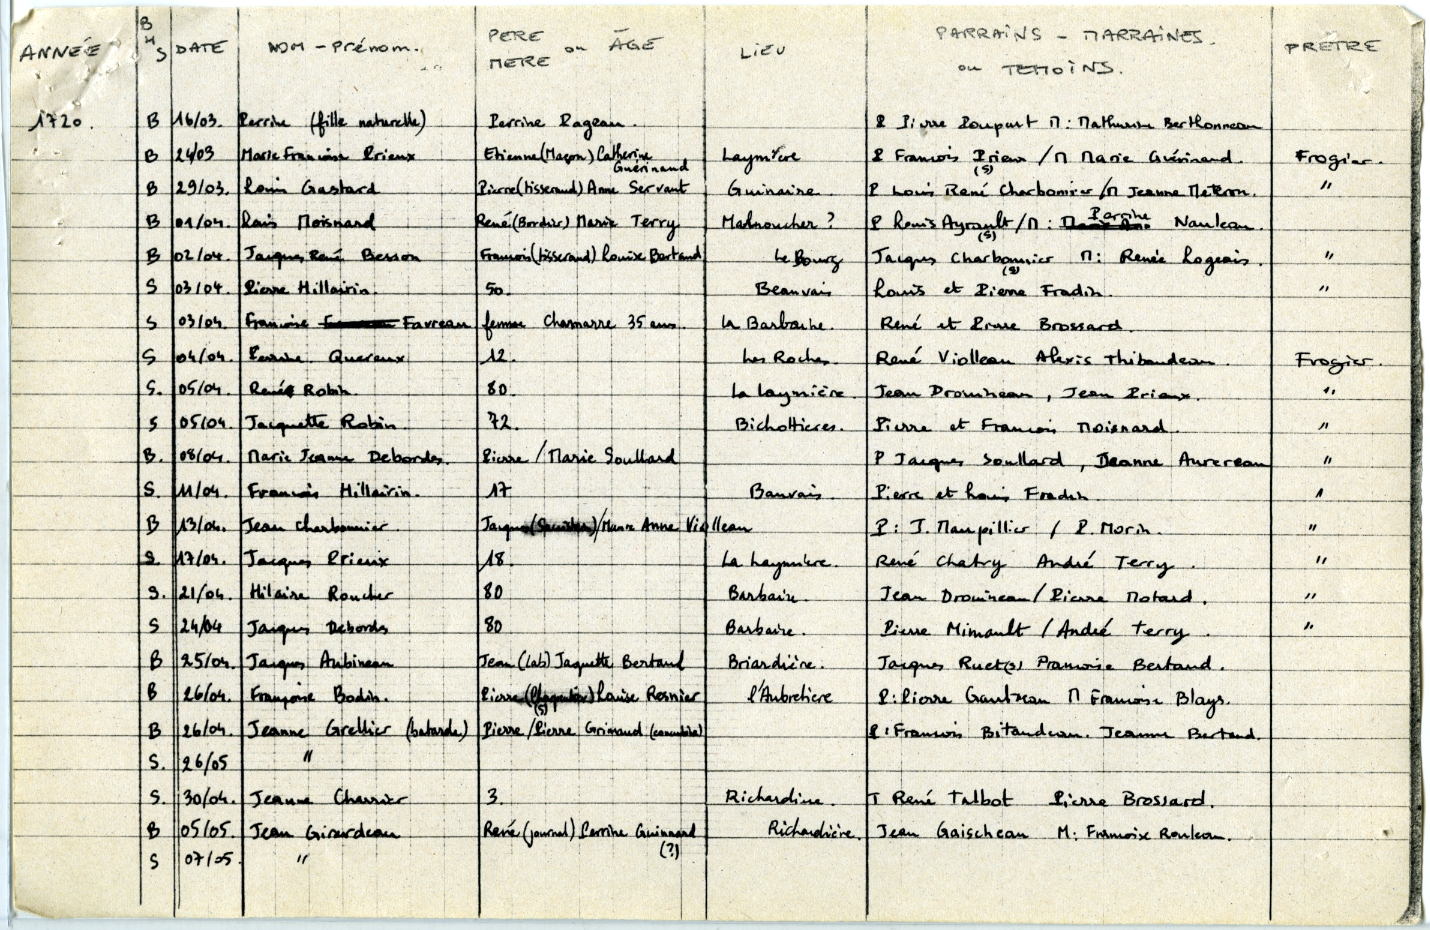 ANNÉE B M S DATE NOM - Prénom. PERE MERE ou ÂGE LIEU PARRAINS - MARRAINES ou TEMOINS. PRETRE
1720. B 16/03. Perrine (fille naturelle) Perrine Pageau. P Pierre Poupart M: Mathurine Berthonneau
B 24/03 Marie Françoise Prieux Etienne (Maçon) Catherine Guérinaud Laymière P François Prieux (s) / M Marie Guérinaud. Frogier.
B 29/03. Louis Gastard Pierre (tisserand) Anne Servant Guinaire. P Louis René Charbonnier / M Jeanne Meteron. "
B 01/04. Louis Moisnard René (Bordier) Marie Terry Malnoucher ? P Louis Ayrault (s) / M: Perrine Nauleau. "
B 02/04. Jacques René Besson François (tisserand) Louise Bertaud Le Bourg Jacques Charbonnier (s) M: Renée Logeais. "
S 03/04. Pierre Hillairin. 50. Beauvais Louis et Pierre Fradin. "
S 03/04. Françoise Favreau femme Chamarre 35 ans. La Barbaire. René et Brossard.
S 04/04. Perrine Quereux 12. Les Roches. René Violleau Alexis Thibaudeau. Frogier.
S. 05/04. René Robin. 80. La Laymière. Jean Drouineau, Jean Prieux. "
S 05/04. Jacquette Robin. 72. Bichottieres. Pierre et François Moisnard. "
B. 08/04. Marie Jeanne Debordes. Pierre / Marie Soullard P Jacques Soullard, Jeanne Aurereau "
S. 11/04. François Hillairin. 17 Bauvais. Pierre et Louis Fradin. "
B 13/04. Jean Charbonnier Jacques / Marie Anne Violleau P: J. Maupillier / P. Morin. "
S. 17/04. Jacques Prieux 18. La Laymière. René Chatry André Terry. "
S. 21/04. Hilaire Roucher 80 Barbaire. Jean Drouineau / Pierre Motard. "
S 24/04 Jacques Debordes 80 Barbaire. Pierre Mimault / André Terry. "
B 25/04. Jacques Aubineau Jean (Lab) Jaquette Bertaud Briardière. Jacques Ruet (s) Françoise Bertaud.
B 26/04. Françoise Bodin. Pierre (s) Louise Resnier l'Aubretiere P: Pierre Gautreau M Françoise Blays.
B 26/04. Jeanne Grellier (batarde) Pierre / Pierre Grimaud (concubine) P: François Bitaudeau. Jeanne Bertaud.
S. 26/05 "
S. 30/04. Jeanne Charrier 3. Richardière. T René Talbot Pierre Brossard.
B 05/05. Jean Girardeau René (journal) Perrine Guinnard (?) Richardière. Jean Gaischeau M: Françoise Rouleau.
S 07/05. "